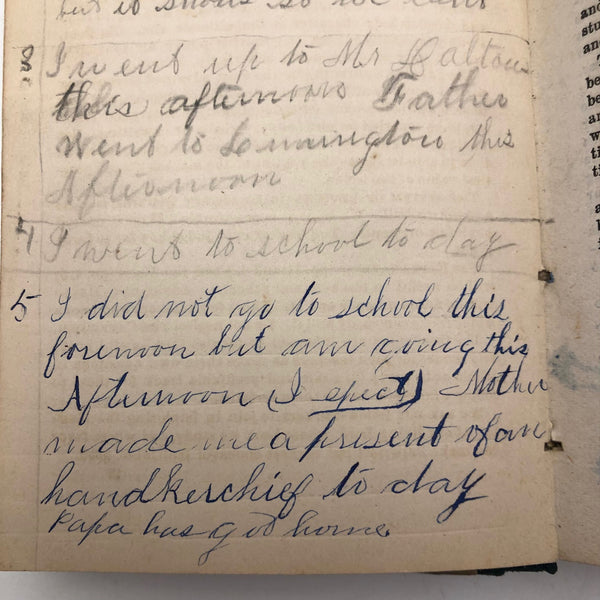 but it snows so we cant
8 I went up to Mr Dalton
this afternoon Father
went to this
Afternoon
4 I went to school to day
5 I did not go to school this
forenoon but am going this
Afternoon (I epict) Mother
made me a present of an
handkerchief to day
Papa has got home
and
stu
an
T
be
be
an
w
ti
ti
a
b
i